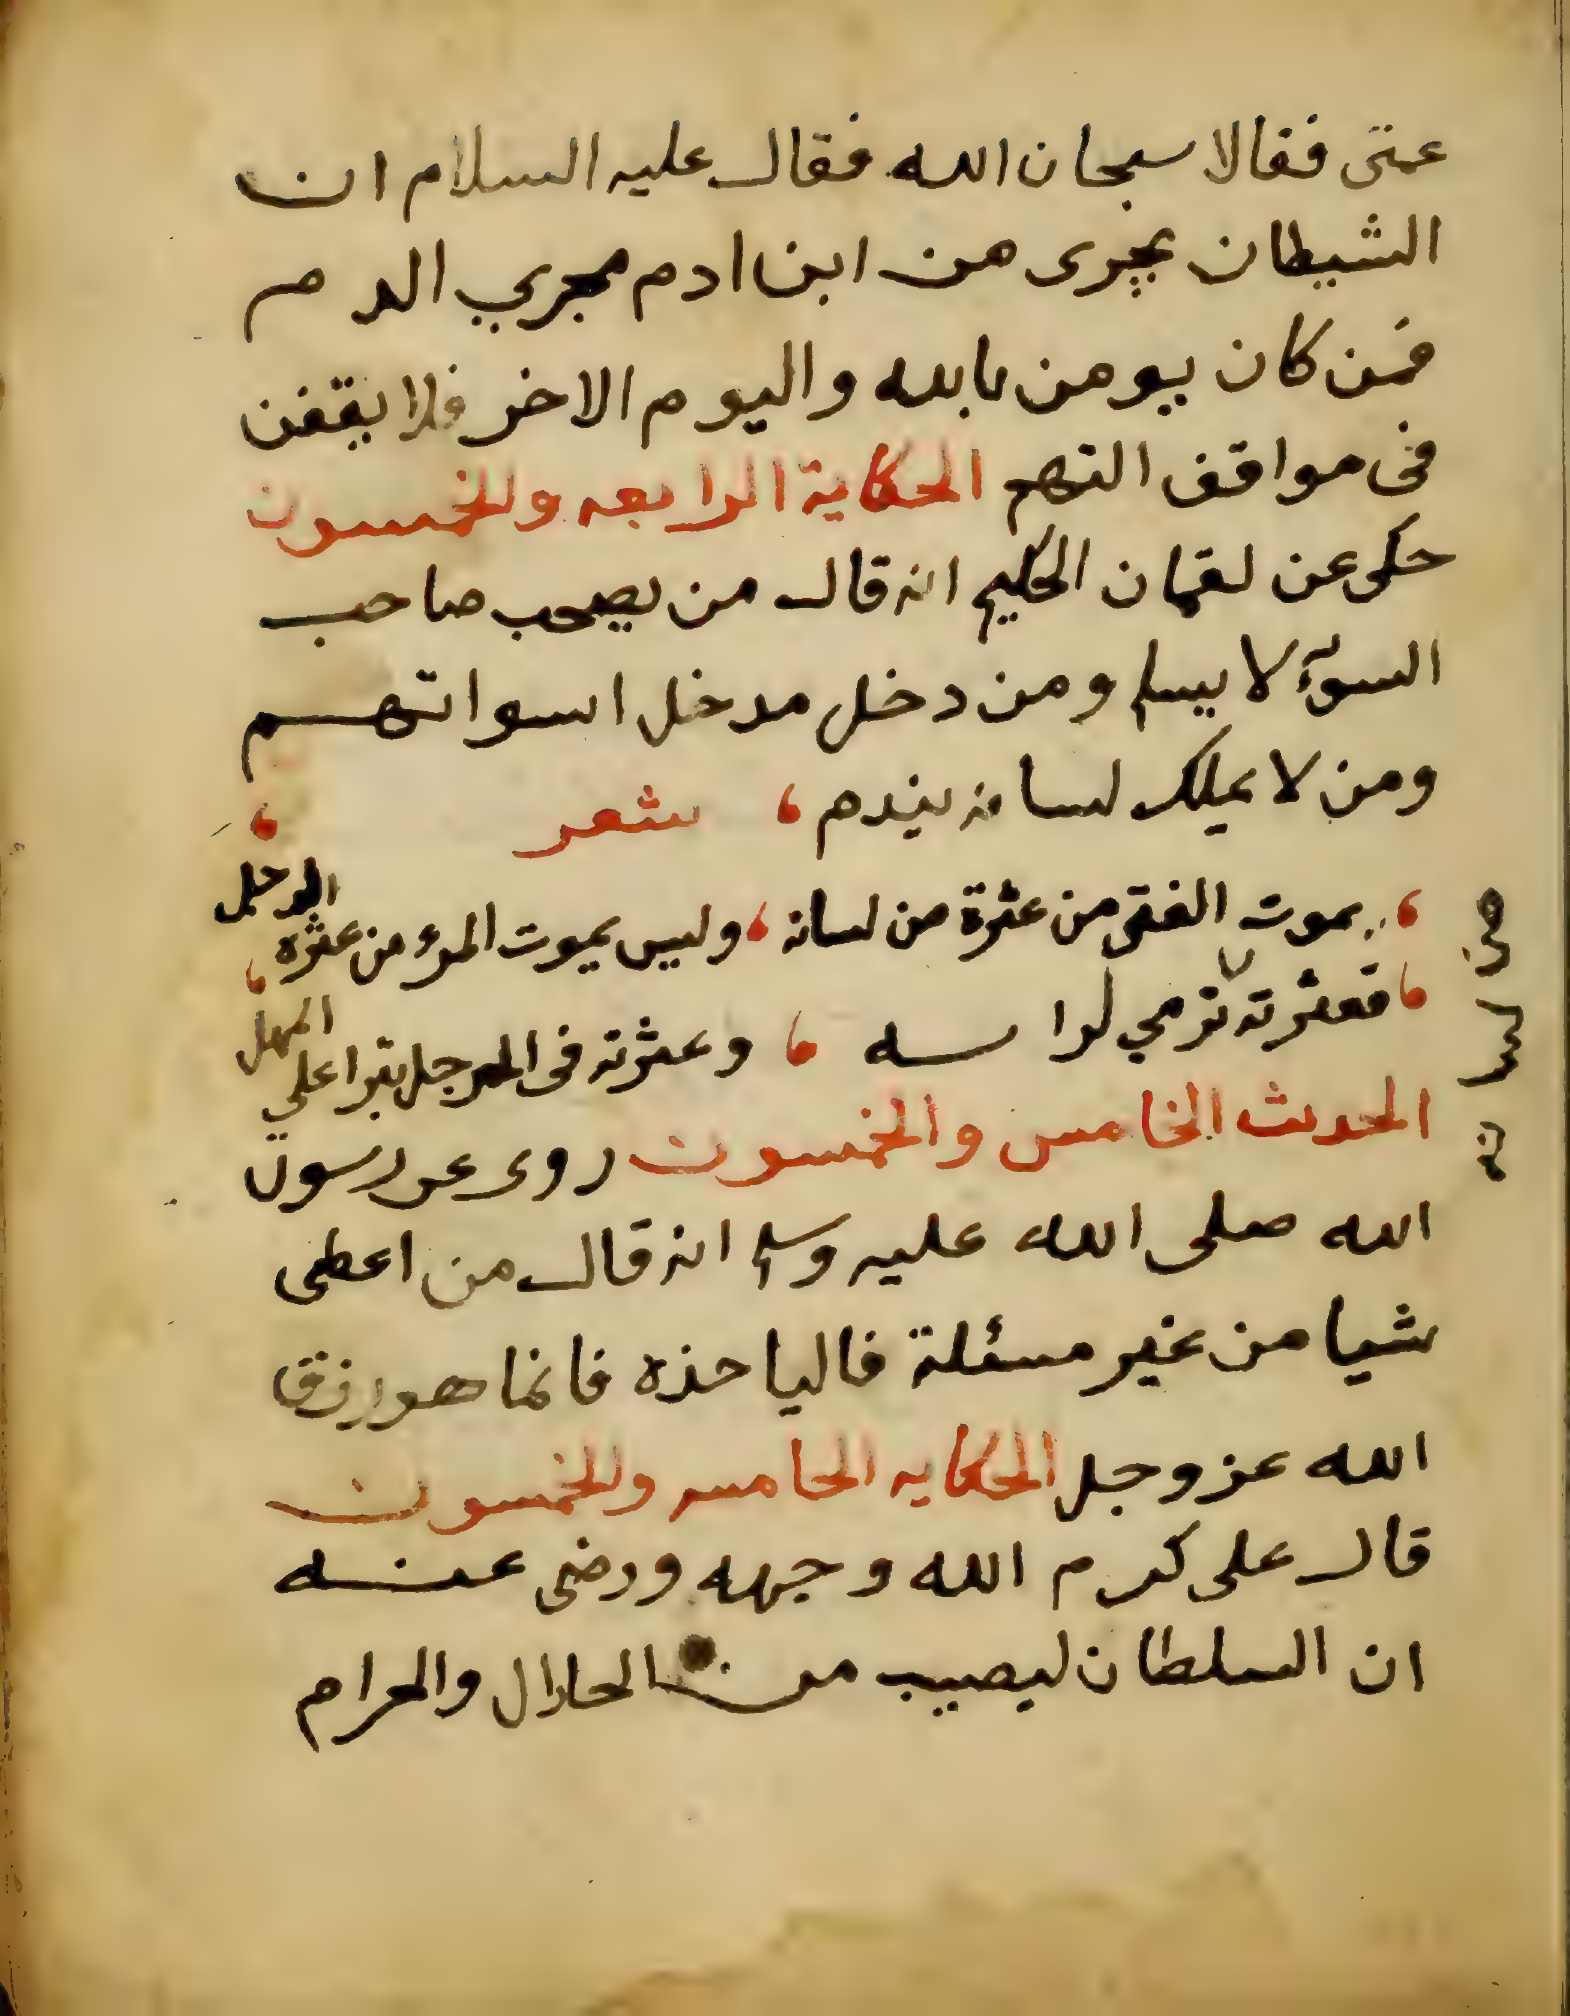 عمتى فقالا سبحان الله فقال عليه السلام ان
الشيطان يجرى من ابن ادم مجري الدم
فمن كان يومن بالله واليوم الاخر فلا يقفن
فى مواقف التهم الحكاية الرابعه والخمسون
حكى عن لقمان الحكيم انه قال من يصحب صاحب
السوء لا يسلم ومن دخل مدخل اسواتهم
ومن لا يملك لسانه يندم ، شعر ،
، يموت الفتى من عثرة من لسانه ، وليس يموت المرء من عثره الرجل ،
، فعثرته ترمي لراسه ، وعثرته فى الرجل تبرا على المهل
من لسانه
الحدث الخامس والخمسون روى عن رسول
الله صلى الله عليه وسلم انه قال من اعطى
شيا من غير مسئلة فالياخذه فانما هو رزق
الله عز وجل الحكايه الخامسه والخمسون
قال على كرم الله وجهه ورضى عنه
ان السلطان ليصيب من الحلال والحرام